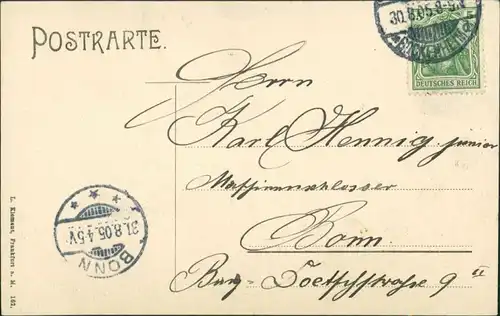 POSTKARTE.
30.8.05.8-9N
BOCKENHEIM
DEUTSCHES REICH
Herrn
Karl Hennig junior
Maschinenschlosser
Bonn
31.8.05.4-5V
BONN
L. Klement, Frankfurt a. M. 162.